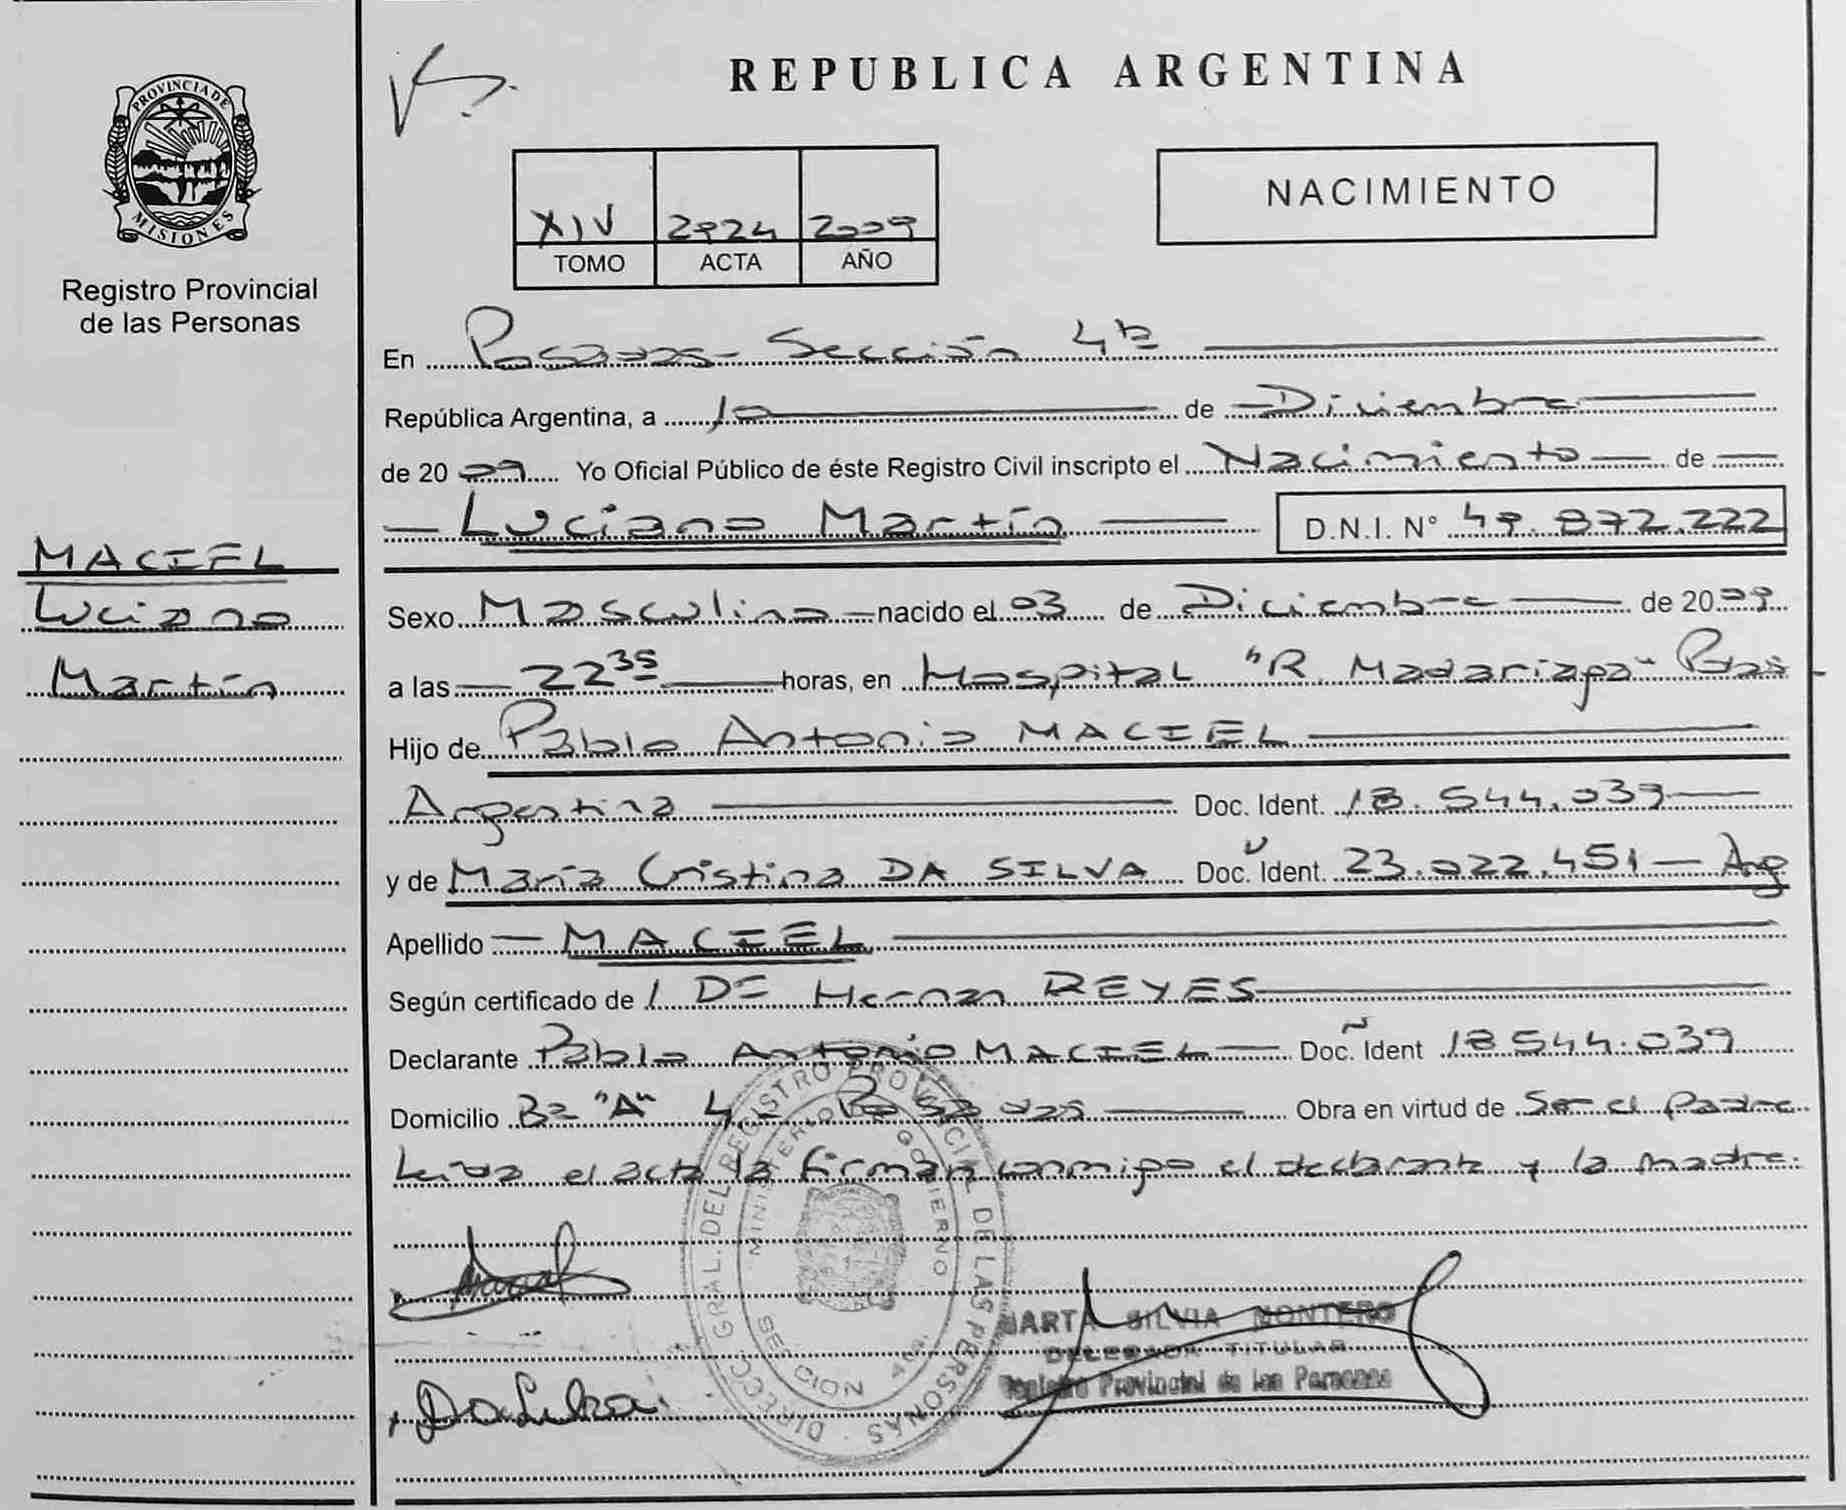 PROVINCIA DE
MISIONES
Registro Provincial
de las Personas
MACIEL
Luciano
Martín
REPUBLICA ARGENTINA
XIV 2924 2009
TOMO ACTA AÑO
NACIMIENTO
En Posadas - Sección 4ta
República Argentina, a 10 de Diciembre
de 2009 Yo Oficial Público de éste Registro Civil inscripto el Nacimiento de
Luciano Martín D.N.I. N° 49.872.222
Sexo Masculino nacido el 03 de Diciembre de 2009
a las 22 35 horas, en Hospital "R. Madariaga" Pdas
Hijo de Pablo Antonio MACIEL
Argentina Doc. Ident. 18.544.039
y de María Cristina DA SILVA Doc. Ident. 23.022.451 - Arg
Apellido MACIEL
Según certificado de DE Hernan REYES
Declarante Pablo Antonio MACIEL Doc. Ident 18.544.039
Domicilio Bº "A" 4 - Posadas Obra en virtud de Ser el Padre
Leída el acta la firman conmigo el declarante y la madre.
DIRECC. GRAL. DEL REGISTRO PROVINCIAL DE LAS PERSONAS
MINISTERIO DE GOBIERNO
SECCION 4ta.
MARTA SILVIA MONTERO
DELEGADA TITULAR
Registro Provincial de las Personas